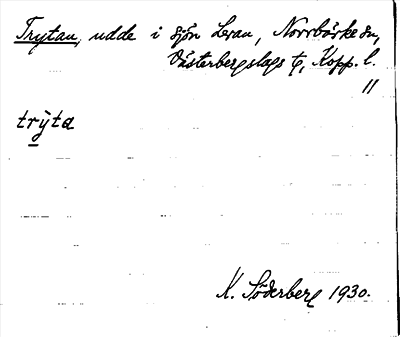 Trytan, udde i sjön Leran, Norrbärke sn,
Västerbergslags tg, Kopp. l.
11
trỳta
K. Söderberg 1930.